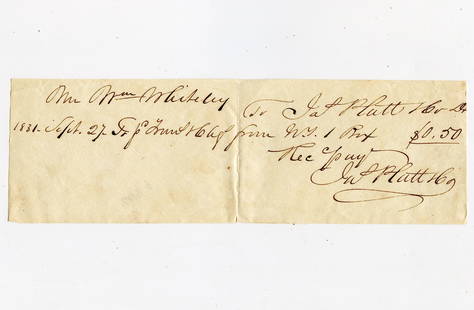 Mr Wm Whiteley To Jas Platt & Co Dr
1831. Sept. 27. To pd frt & Chgs from N.Y. 1 Box $0.50
Rec'd pay
Jas Platt & Co